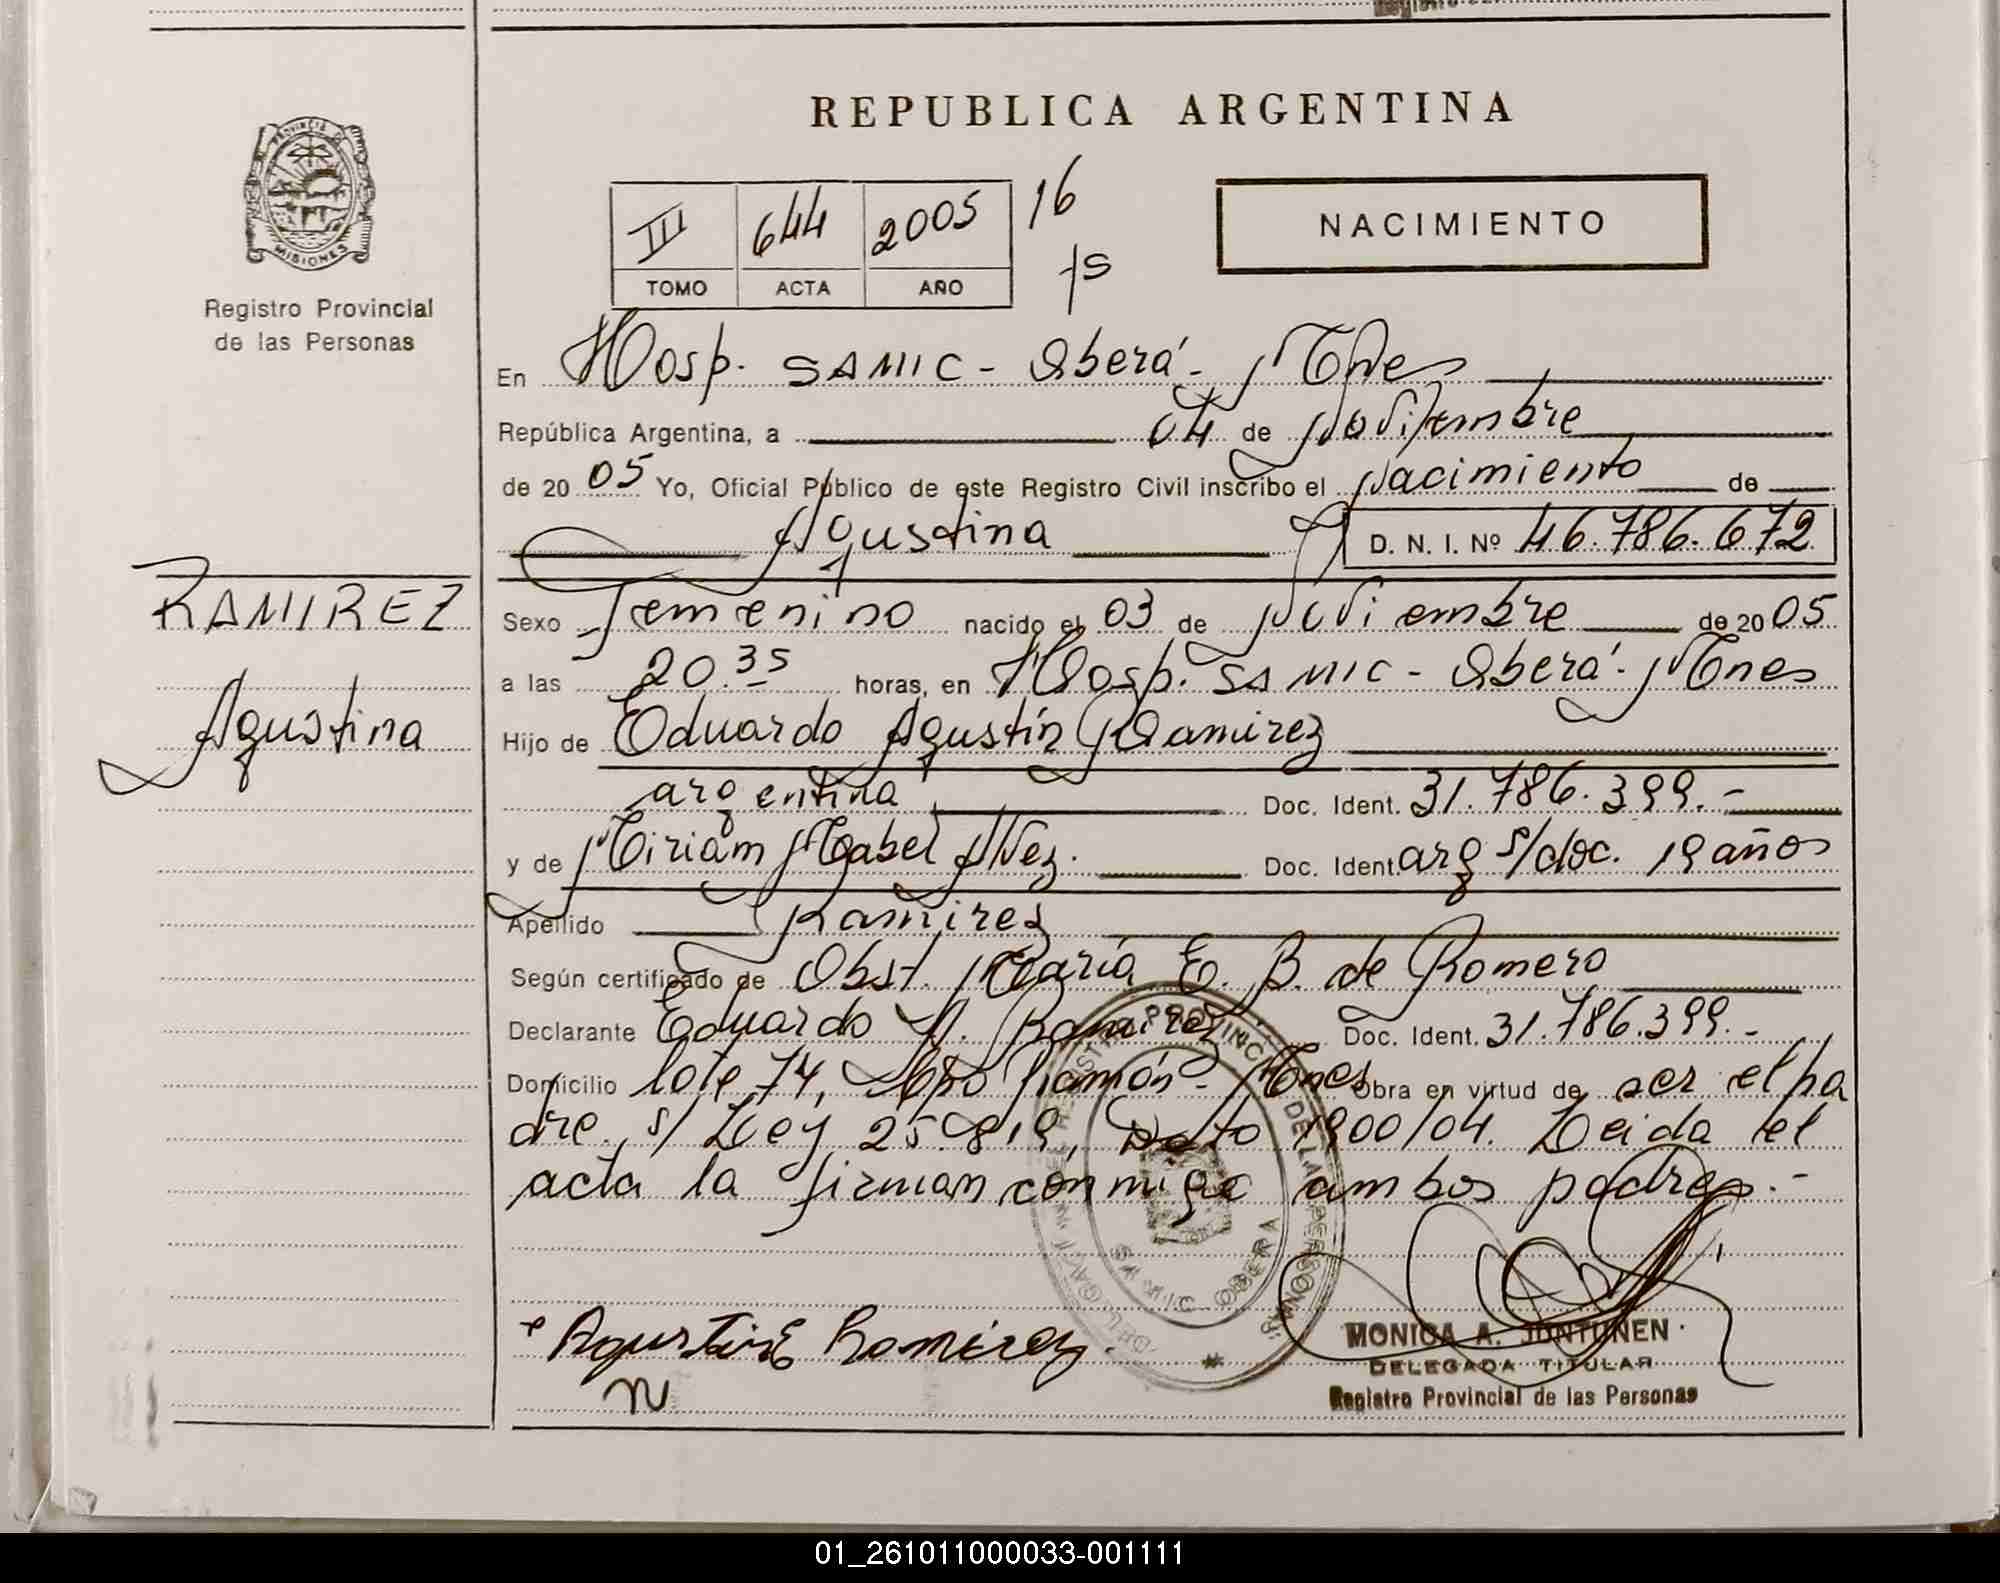 REPUBLICA ARGENTINA
PROVINCIA DE
MISIONES
Registro Provincial
de las Personas
III 644 2005 16
TOMO ACTA AÑO
NACIMIENTO
En Hosp. SAMIC - Oberá - Mnes
República Argentina, a 04 de Noviembre
de 2005 Yo, Oficial Público de este Registro Civil inscribo el Nacimiento de
Agustina D. N. I. Nº 46.786.672
RAMIREZ
Agustina
Sexo Femenino nacido el 03 de Noviembre de 2005
a las 20.35 horas, en Hosp. SAMIC - Oberá - Mnes
Hijo de Eduardo Agustín Ramirez
argentina Doc. Ident. 31.786.399.-
y de Miriam Mabel Alvez. Doc. Ident. arg s/doc. 19 años
Apellido Ramirez
Según certificado de Obst. María E. B. de Romero
Declarante Eduardo A. Ramirez Doc. Ident. 31.786.399.-
Domicilio lote 74, Ramón - Mnes Obra en virtud de ser el pa
dre. s/ Ley 25.819, Dcto 1900/04. Leida el
acta la firman conmigo ambos padres.-
SAMIC OBERA
Ramirez
MONICA A. JUNTUNEN
DELEGADA TITULAR
Registro Provincial de las Personas
01_261011000033-001111